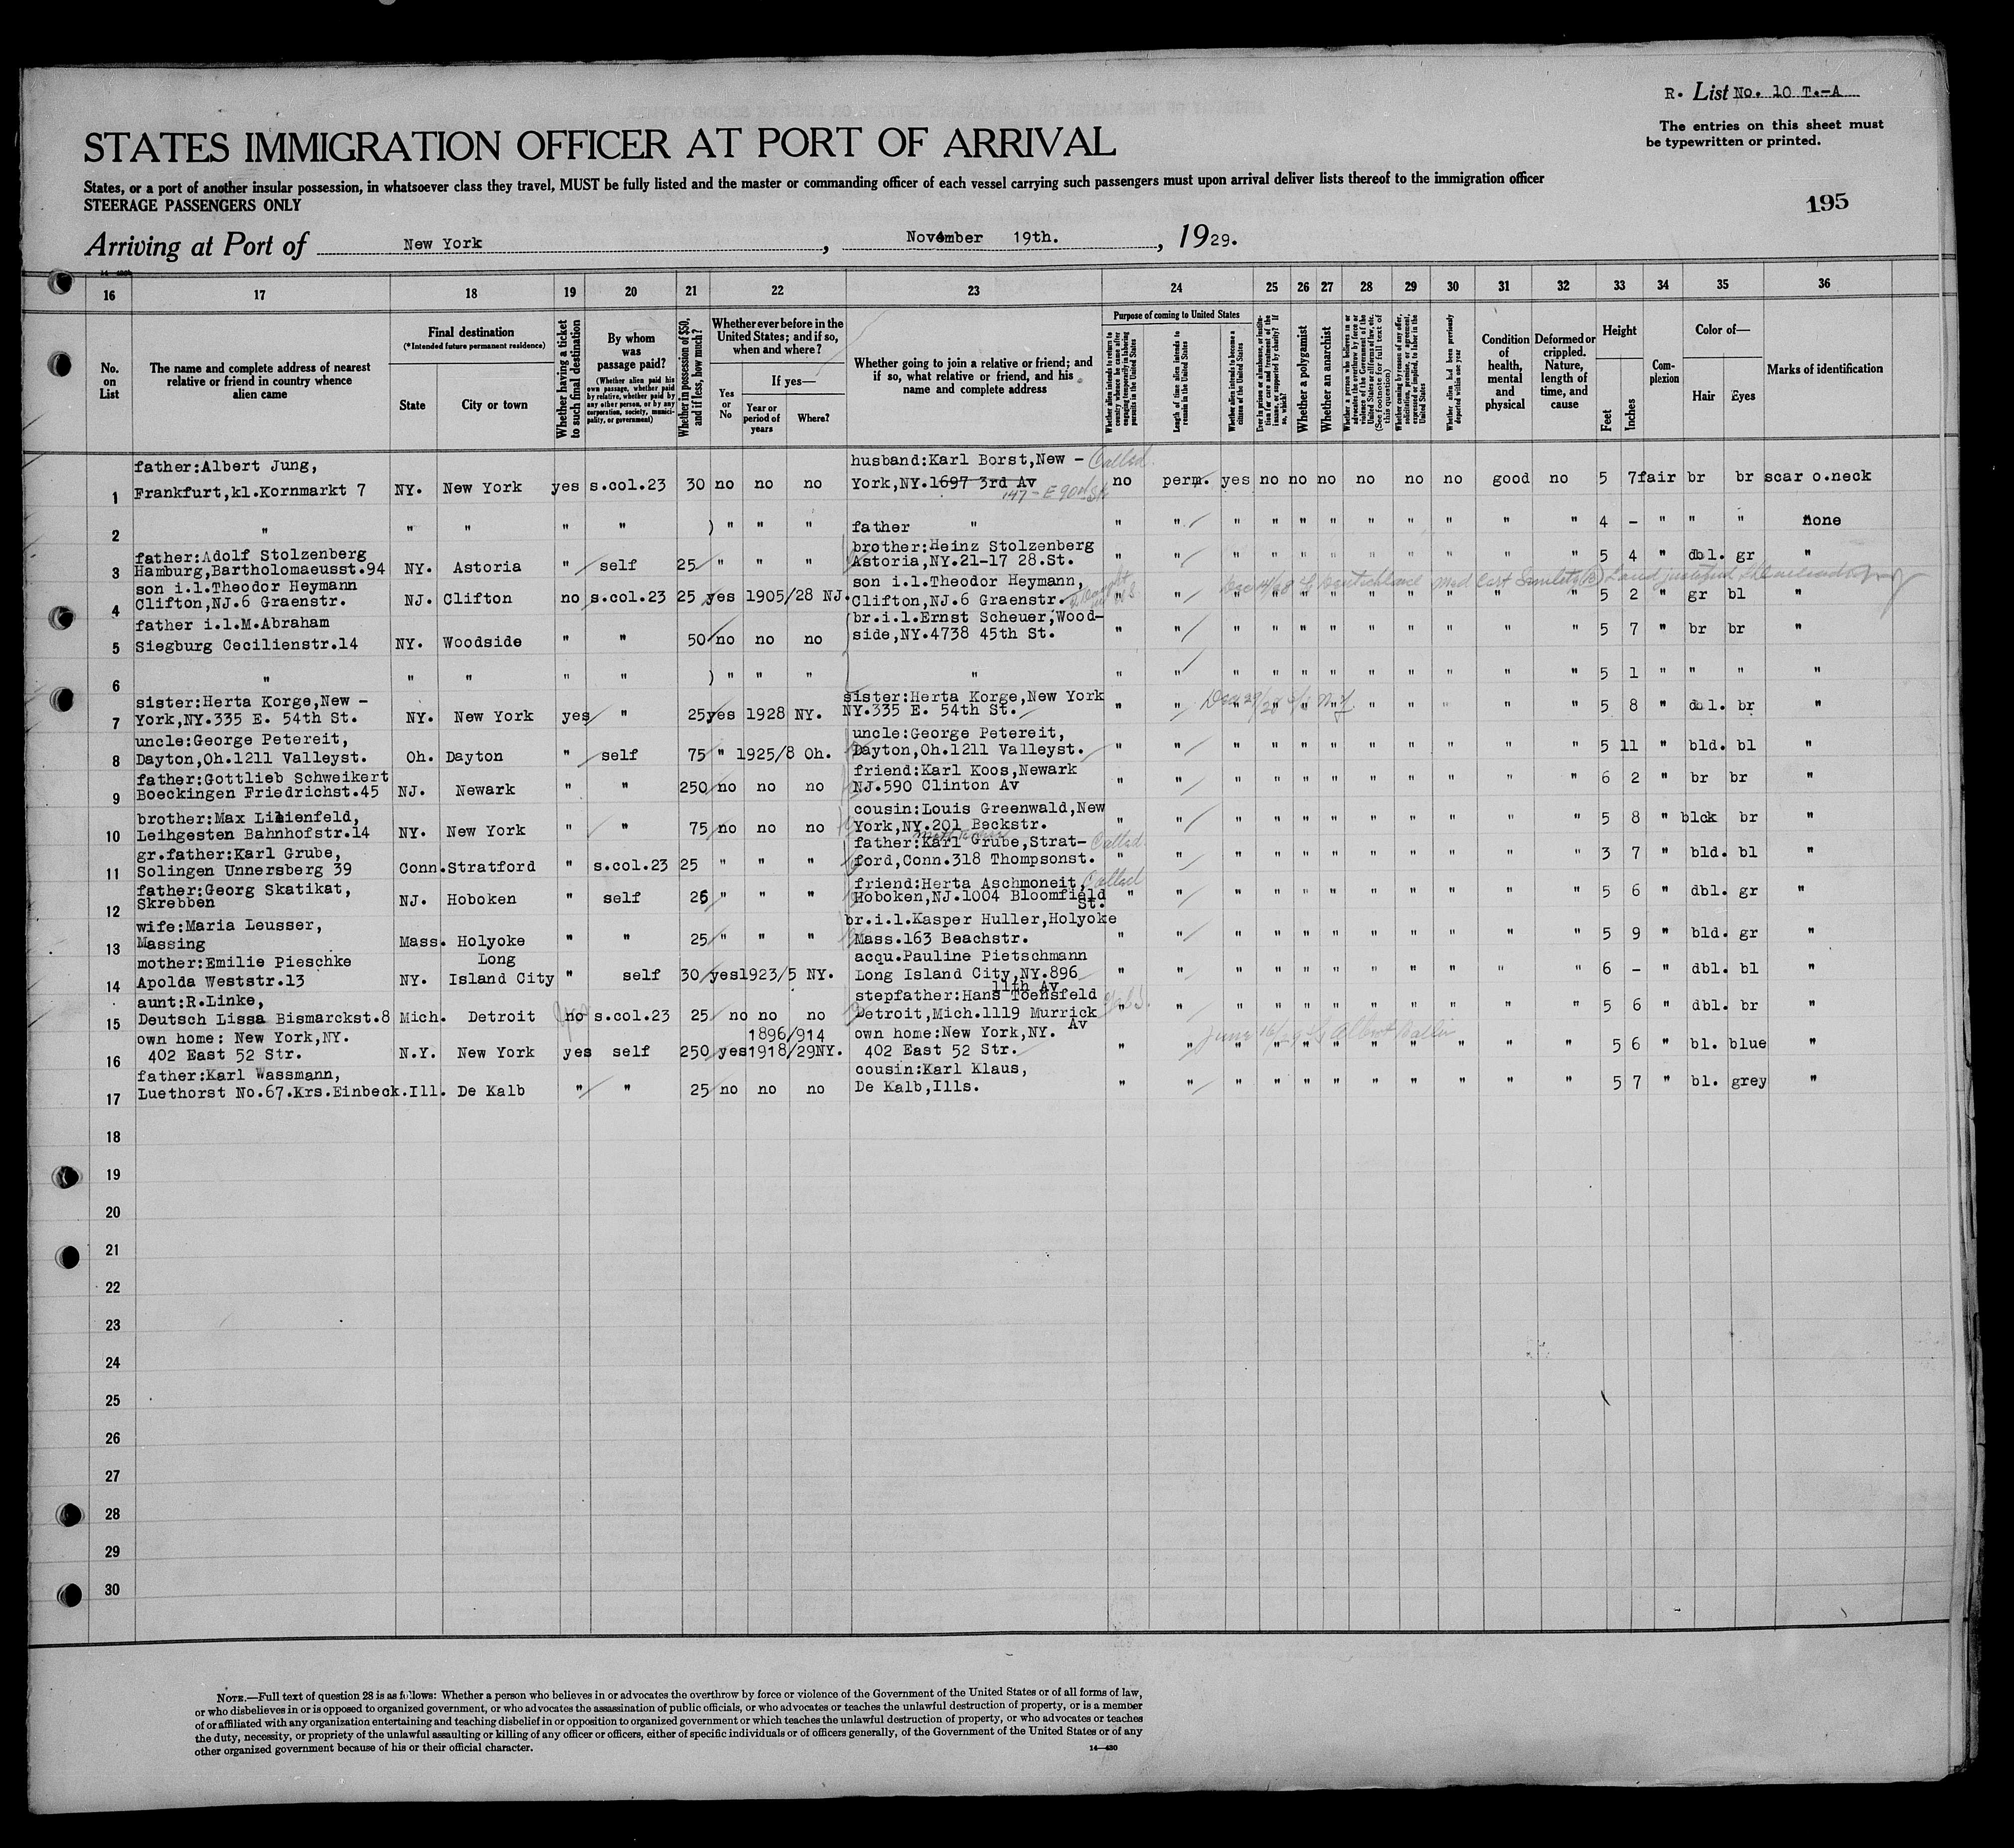 R. List No. 10 T.-A
The entries on this sheet must
be typewritten or printed.
STATES IMMIGRATION OFFICER AT PORT OF ARRIVAL
States, or a port of another insular possession, in whatsoever class they travel, MUST be fully listed and the master or commanding officer of each vessel carrying such passengers must upon arrival deliver lists thereof to the immigration officer
STEERAGE PASSENGERS ONLY
195
Arriving at Port of New York , November 19th. , 1929.
16 17 18 19 20 21 22 23 24 25 26 27 28 29 30 31 32 33 34 35 36
No. on List
The name and complete address of nearest relative or friend in country whence alien came
Final destination
(*Intended future permanent residence)
State
City or town
Whether having a ticket to such final destination
By whom was passage paid?
(Whether alien paid his own passage, whether paid by relative, whether paid by any other person, or by any corporation, society, municipality, or government)
Whether in possession of $50, and if less, how much?
Whether ever before in the United States; and if so, when and where?
Yes or No
If yes—
Year or period of years
Where?
Whether going to join a relative or friend; and if so, what relative or friend, and his name and complete address
Purpose of coming to United States
Whether alien intends to return to country whence he came after engaging temporarily in laboring pursuits in the United States
Length of time alien intends to remain in the United States
Whether alien intends to become a citizen of the United States
Ever in prison or almshouse, or institution for care and treatment of the insane, or supported by charity? If so, which?
Whether a polygamist
Whether an anarchist
Whether a person who believes in or advocates the overthrow by force or violence of the Government of the United States or all forms of law, etc. (See footnote for full text of this question)
Whether coming by reason of any offer, solicitation, promise, or agreement, expressed or implied, to labor in the United States
Whether alien had been previously deported within one year
Condition of health, mental and physical
Deformed or crippled. Nature, length of time, and cause
Height
Feet
Inches
Complexion
Color of—
Hair
Eyes
Marks of identification
father:Albert Jung, husband:Karl Borst,New - Called.
1 Frankfurt,kl.Kornmarkt 7 NY. New York yes s.col.23 30 no no no York,NY.1697 3rd Av no perm. yes no no no no no no good no 5 7 fair br br scar o.neck
147 - E 90th St
2 " " " " " ) " " " father " " " " " " " " " " " " 4 - " " " none
father:Adolf Stolzenberg brother:Heinz Stolzenberg
3 Hamburg,Bartholomaeusst.94 NY. Astoria " self 25 " " " Astoria,NY.21-17 28.St. " " " " " " " " " " " 5 4 " dbl. gr "
son i.l.Theodor Heymann son i.l.Theodor Heymann,
4 Clifton,NJ.6 Graenstr. NJ. Clifton no s.col.23 25 yes 1905/28 NJ. Clifton,NJ.6 Graenstr. " " " " " " " " " " " 5 2 " gr bl "
father i.l.M.Abraham br.i.l.Ernst Scheuer,Wood-
5 Siegburg Cecilienstr.14 NY. Woodside " " 50 no no no side,NY.4738 45th St. " " " " " " " " " " " 5 7 " br br "
6 " " " " " ) " " " " " " " " " " " " " " " 5 1 " " " "
sister:Herta Korge,New - sister:Herta Korge,New York
7 York,NY.335 E. 54th St. NY. New York yes " 25 yes 1928 NY. NY.335 E. 54th St. " " " " " " " " " " " 5 8 " dbl. br "
uncle:George Petereit, uncle:George Petereit,
8 Dayton,Oh.1211 Valleyst. Oh. Dayton " self 75 " 1925/8 Oh. Dayton,Oh.1211 Valleyst. " " " " " " " " " " " 5 11 " bld. bl "
father:Gottlieb Schweikert friend:Karl Koos,Newark
9 Boeckingen Friedrichst.45 NJ. Newark " " 250 no no no NJ.590 Clinton Av " " " " " " " " " " " 6 2 " br br "
brother:Max Lilienfeld, cousin:Louis Greenwald,New
10 Leihgesten Bahnhofstr.14 NY. New York " " 75 no no no York,NY.201 Beckstr. " " " " " " " " " " " 5 8 " blck br "
gr.father:Karl Grube, father:Karl Grube,Strat- Called.
11 Solingen Unnersberg 39 Conn. Stratford " s.col.23 25 " " " ford,Conn.318 Thompsonst. " " " " " " " " " " " 3 7 " bld. bl "
father:Georg Skatikat, friend:Herta Aschmoneit, Called
12 Skrebben NJ. Hoboken " self 25 " " " Hoboken,NJ.1004 Bloomfield St. " " " " " " " " " " " 5 6 " dbl. gr "
wife:Maria Leusser, br.i.l.Kasper Huller,Holyoke
13 Massing Mass. Holyoke " " 25 " " " Mass.163 Beachstr. " " " " " " " " " " " 5 9 " bld. gr "
mother:Emilie Pieschke Long acqu.Pauline Pietschmann
14 Apolda Weststr.13 NY. Island City " self 30 yes 1923/5 NY. Long Island City,NY.896 11th Av " " " " " " " " " " " 6 - " dbl. bl "
aunt:R.Linke, stepfather:Hans Toensfeld
15 Deutsch Lissa Bismarckst.8 Mich. Detroit no s.col.23 25 no no no Detroit,Mich.1119 Murrick Av " " " " " " " " " " " 5 6 " dbl. br "
own home: New York,NY. 1896/914 own home:New York,NY.
16 402 East 52 Str. N.Y. New York yes self 250 yes 1918/29 NY. 402 East 52 Str. " " " " " " " " " " " 5 6 " bl. blue "
father:Karl Wassmann, cousin:Karl Klaus,
17 Luethorst No.67.Krs.Einbeck. Ill. De Kalb " " 25 no no no De Kalb,Ills. " " " " " " " " " " " 5 7 " bl. grey "
18
19
20
21
22
23
24
25
26
27
28
29
30
NOTE.—Full text of question 28 is as follows: Whether a person who believes in or advocates the overthrow by force or violence of the Government of the United States or of all forms of law,
or who disbelieves in or is opposed to organized government, or who advocates the assassination of public officials, or who advocates or teaches the unlawful destruction of property, or is a member
of or affiliated with any organization entertaining and teaching disbelief in or opposition to organized government or which teaches the unlawful destruction of property, or who advocates or teaches
the duty, necessity, or propriety of the unlawful assaulting or killing of any officer or officers, either of specific individuals or of officers generally, of the Government of the United States or of any
other organized government because of his or their official character.
14—430